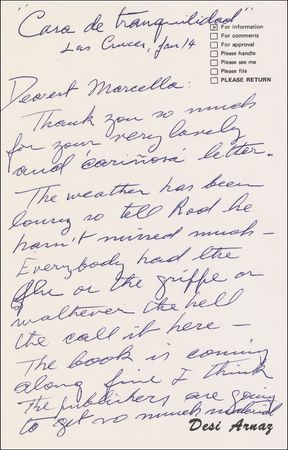 "Casa de tranquilidad"
Las Cruces, Jan 14
For information
For comments
For approval
Please handle
Please see me
Please file
PLEASE RETURN
Dearest Marcella:
Thank you so much
for your very lovely
and "cariñosa" letter.
The weather has been
lousy so tell Rod he
hasn't missed much –
Everybody had the
flu or the griffe or
whatever the hell
the call it here –
The book is coming
along fine I think
The publishers are going
to get so much material
Desi Arnaz